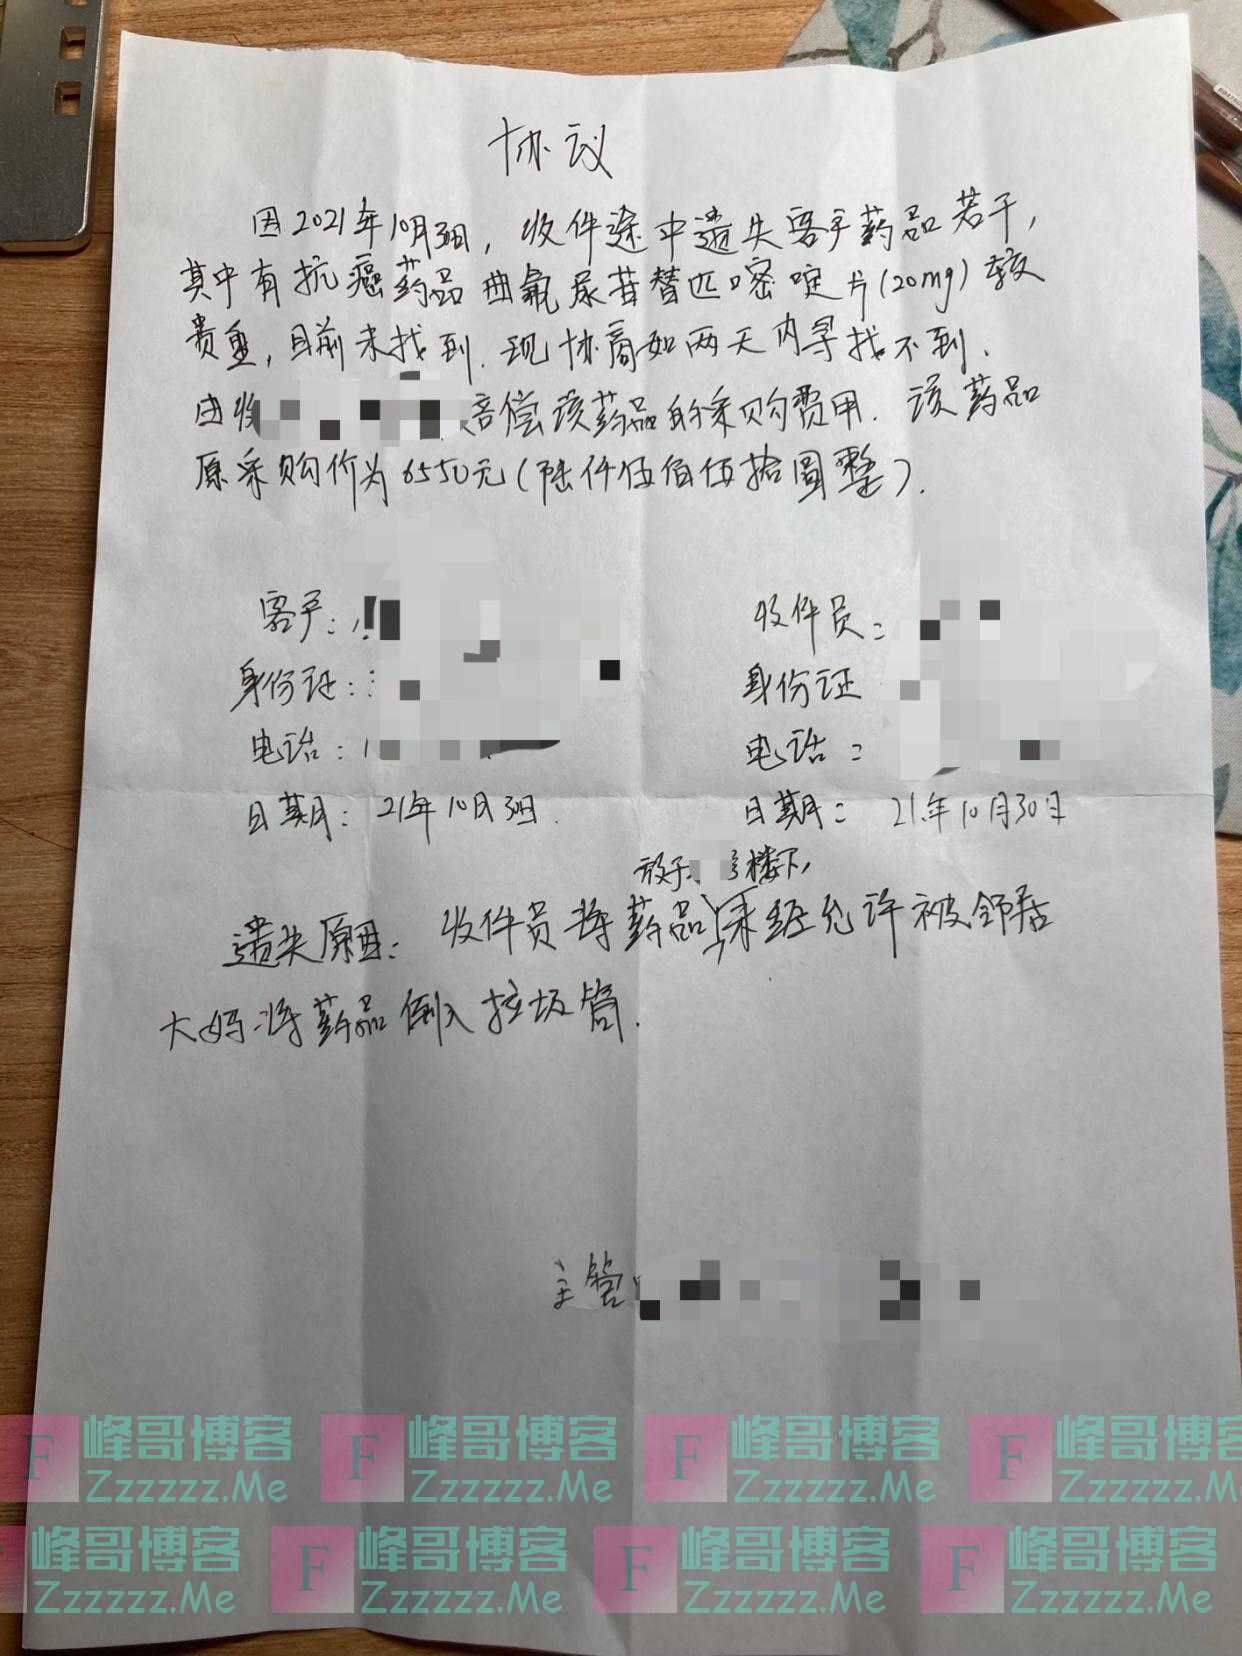 协议
因2021年10月30日，收件途中遗失客户药品若干，
其中有抗癌药品曲氟尿苷替匹嘧啶片(20mg)较
贵重，目前未找到.现协商如两天内寻找不到.
由收 赔偿该药品的采购费用.该药品
原采购价为6550元(陆仟伍佰伍拾圆整).
客户:
收件员:
身份证:
身份证
电话:
电话:
日期: 21年10月30日.
日期: 21年10月30日
放于 号楼下,
遗失原因: 收件员将药品未经允许被邻居
大妈将药品倒入垃圾筒.
主管
F 峰哥博客 Zzzzzz.Me
F 峰哥博客 Zzzzzz.Me
F 峰哥博客 Zzzzzz.Me
F 峰哥博客 Zzzzzz.Me
峰哥博客 Zzzzzz.Me
F 峰哥博客 Zzzzzz.Me
F 峰哥博客 Zzzzzz.Me
F 峰哥博客 Zzzzzz.Me